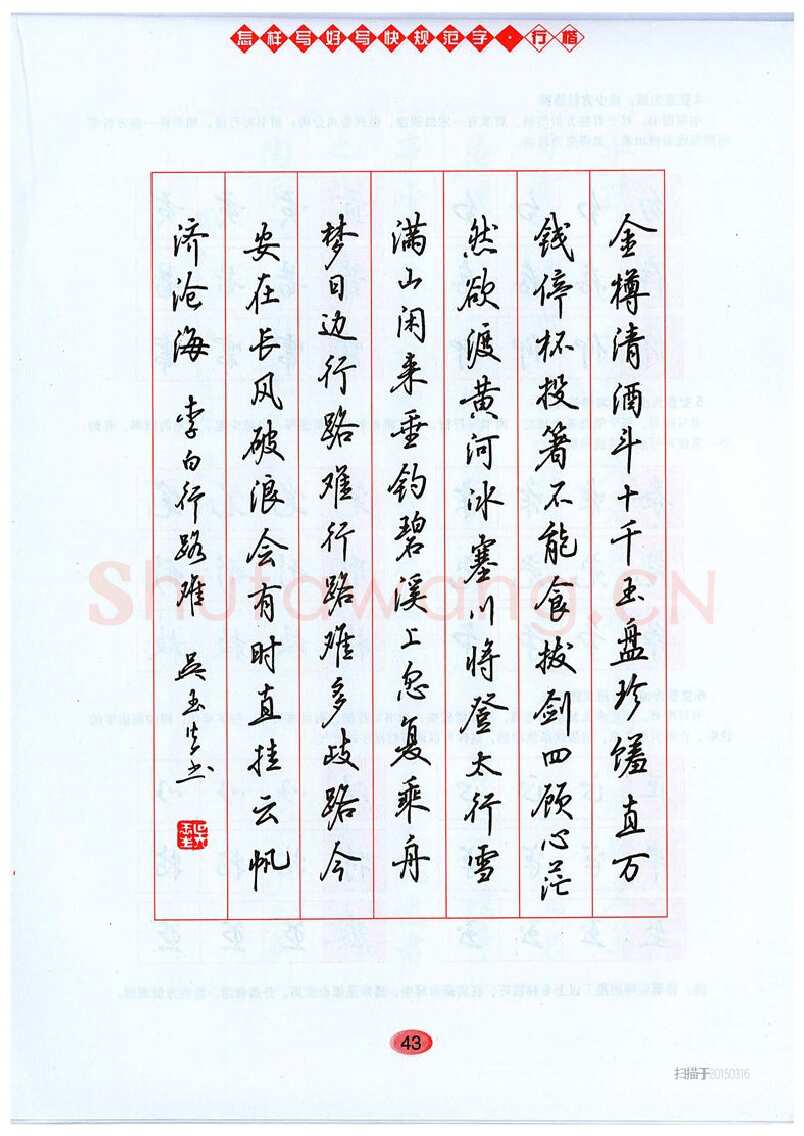 怎样写好写快规范字·行楷
金樽清酒斗十千玉盘珍馐直万
钱停杯投箸不能食拔剑四顾心茫
然欲渡黄河冰塞川将登太行雪
满山闲来垂钓碧溪上忽复乘舟
梦日边行路难行路难多歧路今
安在长风破浪会有时直挂云帆
济沧海 李白行路难 吴玉生书
吴玉生
Shufawang.CN
43
扫描于20150316